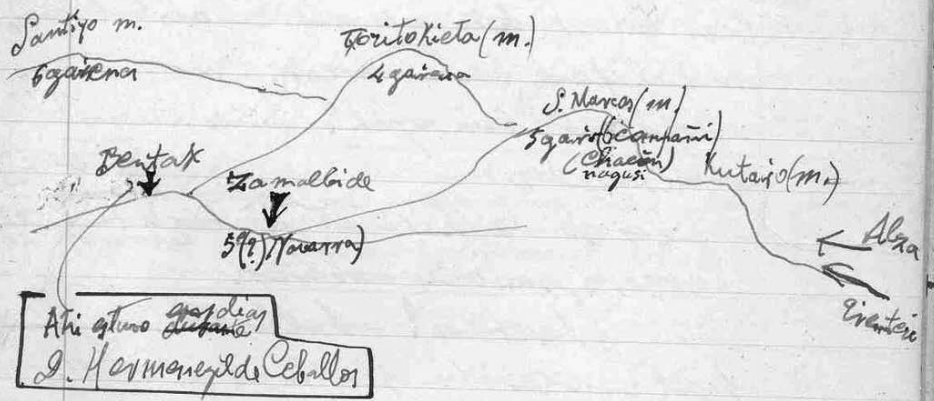 Santiyo m.
6 garrena
Txoritokieta (m.)
4 garrena
S. Marcos (m.)
5 garr (6 Campañi)
(Chacón
nagusi)
Kutarro (m.)
Bentak
Zamalbide
5 (?) Navarra)
Alza
Errenteri
Ahi estuvo dias
durante
D. Hermenegildo Ceballos